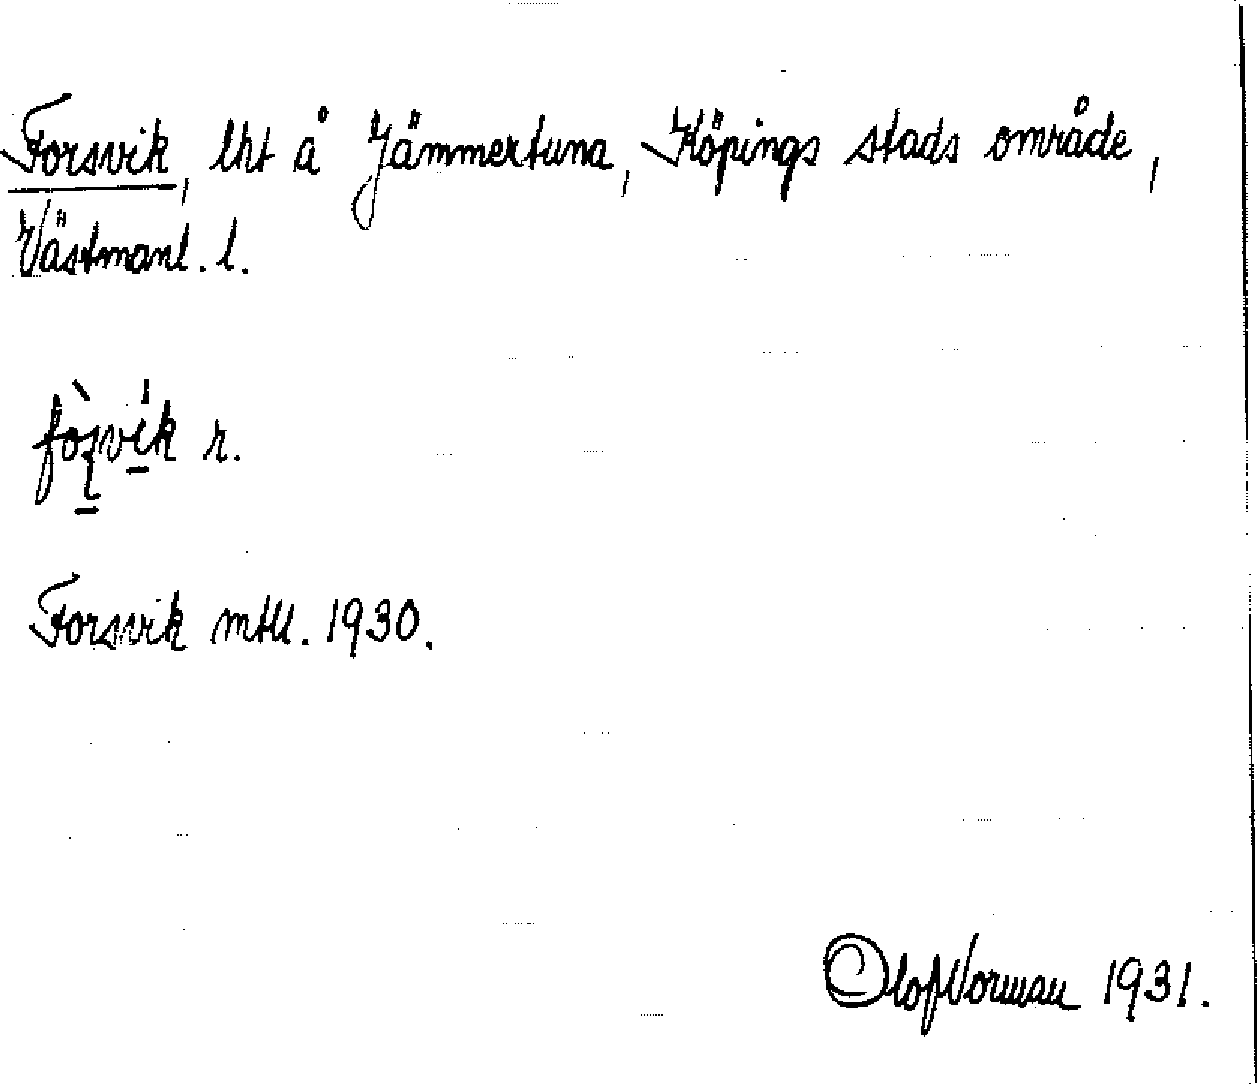 Forsvik, lht å Jämmertuna, Köpings stads område,
Västmanl. l.
r.
Forsvik mtll. 1930.
Olof Norman 1931.